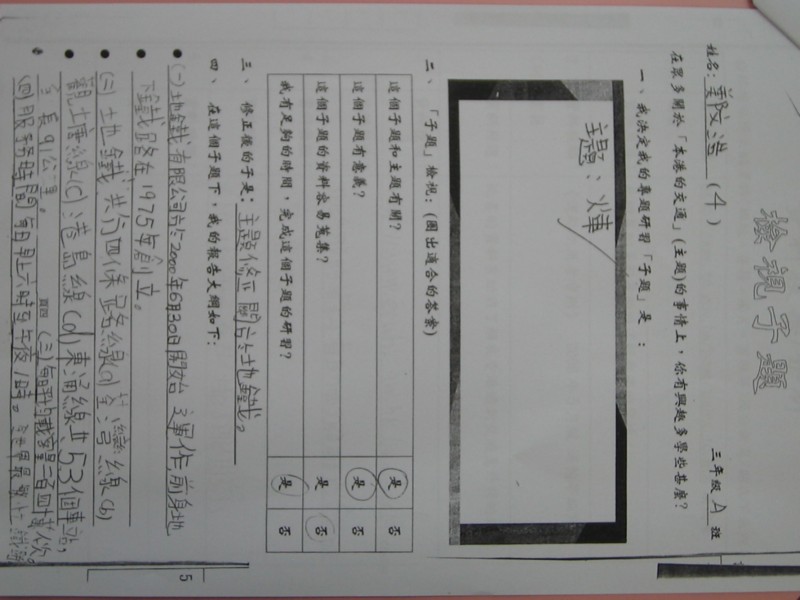 檢視子題
姓名：鄭浩 (4) 三年級 A 班
在眾多關於「本港的交通」(主題)的事情上，你有興趣多學些甚麼？
一、我決定我的專題研習「子題」是：
主題：
二、「子題」檢視：(圈出適合的答案)
這個子題和主題有關？ 是 否
這個子題有意義？ 是 否
這個子題的資料容易蒐集？ 是 否
我有足夠的時間，完成這個子題的研習？ 是 否
三、修正後的子是：主題修正關於地鐵。
四、在這個子題下，我的報告大綱如下：
(一)地鐵有限公司於2000年6月30日開始運作，前身地
下鐵路在1975年創立。
(二)地鐵共分四條路線(a)荃灣線(b)
觀塘線(c)港島線(d)東涌線共53個車站，
全長91公里。 (三)每日載客量二百四十萬人次。
(四)服務時間每日早上六時至午夜1時。
5